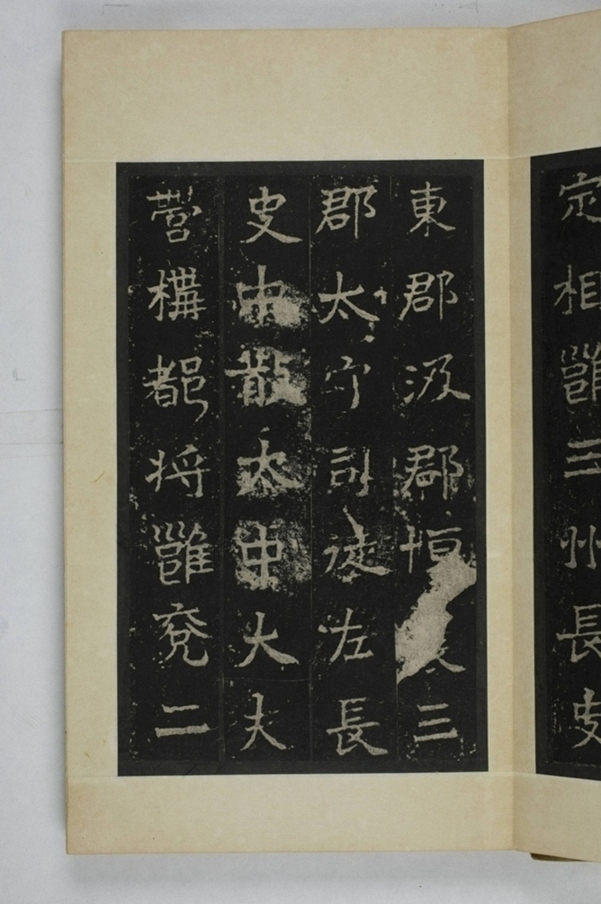 定相雝三州長史
東郡汲郡恒三
郡太守司徒左長
史中散太中大夫
營構都将雝兖二